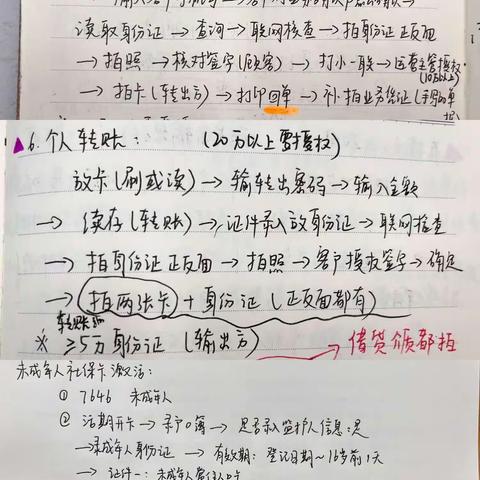 读取身份证 → 查询 → 联网核查 → 拍身份证正反面
→ 拍照 → 核对签字(顾客) → 打小一联 → 运营主管授权
(10万以上)
→ 拍卡(转出方) → 打印回单 → 补拍业务凭证(手写的单
6. 个人转账: (20万以上需授权)
放卡(刷或读) → 输转出密码 → 输入金额
→ 续存(转账) → 证件录入放身份证 → 联网检查
→ 拍身份证正反面 → 拍照 → 客户授权签字 → 确定
→ 拍两张卡 + 身份证(正反面都有)
转账
※ ≥5万身份证(输出方) → 借贷颁都拍
未成年人社保卡激活:
① 7646 未成年人
② 活期开卡 → 录户口簿 → 是否录入监护人信息:是
→ 未成年人身份证 → 有效期: 登记日期~16岁前1天
→ 证件一: 未成年